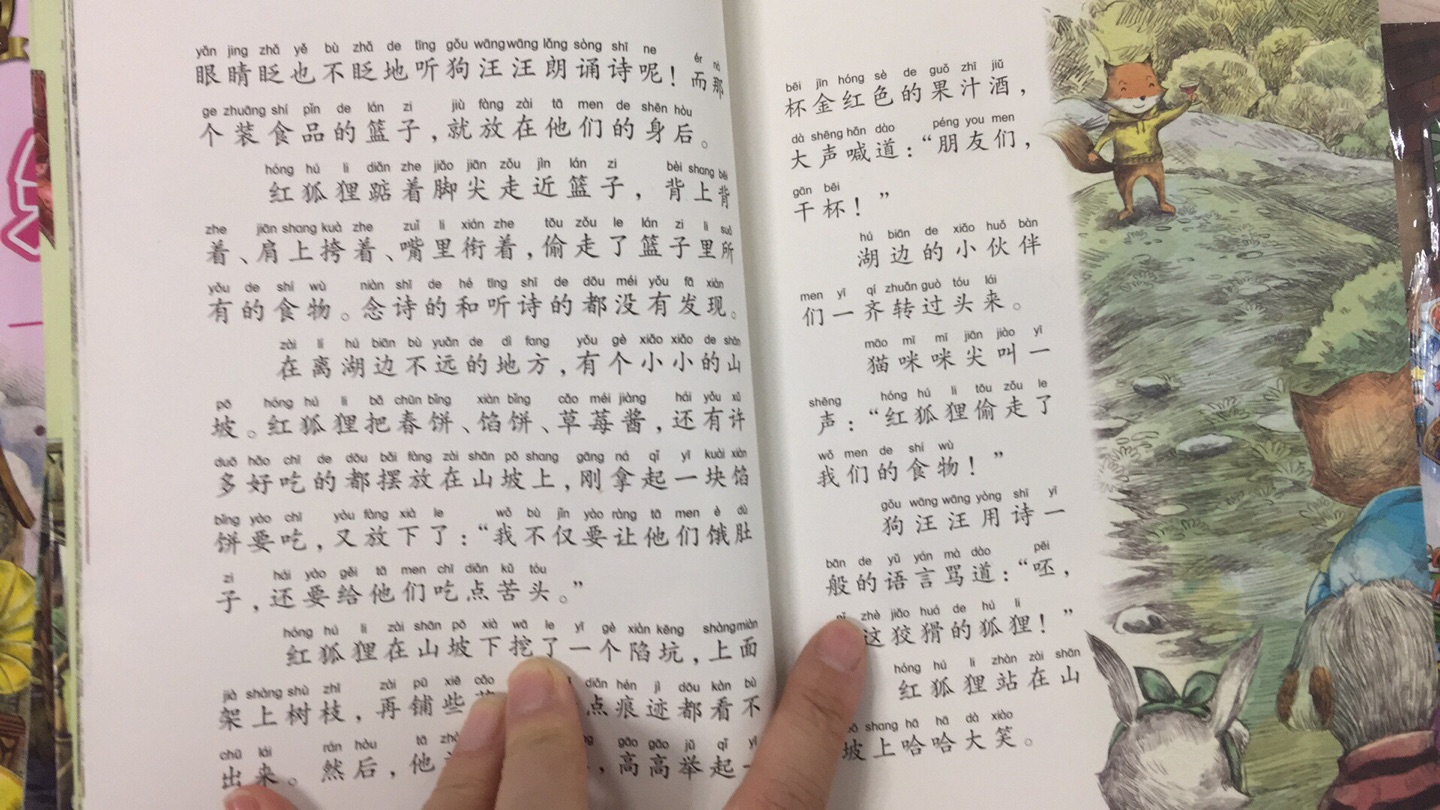 yǎn jing zhǎ yě bù zhǎ de tīng gǒu wāng wāng lǎng sòng shī ne ér nà
眼睛眨也不眨地听狗汪汪朗诵诗呢！而那
ge zhuāng shí pǐn de lán zi jiù fàng zài tā men de shēn hòu
个装食品的篮子，就放在他们的身后。
hóng hú li diǎn zhe jiǎo jiān zǒu jìn lán zi bèi shang bēi
红狐狸踮着脚尖走近篮子，背上背
zhe jiān shang kuà zhe zuǐ li xián zhe tōu zǒu le lán zi li suǒ
着、肩上挎着、嘴里衔着，偷走了篮子里所
yǒu de shí wù niàn shī de hé tīng shī de dōu méi yǒu fā xiàn
有的食物。念诗的和听诗的都没有发现。
zài lí hú biān bù yuǎn de dì fang yǒu gè xiǎo xiǎo de shān
在离湖边不远的地方，有个小小的山
pō hóng hú li bǎ chūn bǐng xiàn bǐng cǎo méi jiàng hái yǒu xǔ
坡。红狐狸把春饼、馅饼、草莓酱，还有许
duō hǎo chī de dōu bǎi fàng zài shān pō shang gāng ná qǐ yī kuài xiàn
多好吃的都摆放在山坡上，刚拿起一块馅
bǐng yào chī yòu fàng xià le wǒ bù jǐn yào ràng tā men è dù
饼要吃，又放下了：“我不仅要让他们饿肚
zi hái yào gěi tā men chī diǎn kǔ tóu
子，还要给他们吃点苦头。”
hóng hú li zài shān pō xià wā le yī gè xiàn kēng shàng miàn
红狐狸在山坡下挖了一个陷坑，上面
jià shàng shù zhī zài pū xiē cǎo diǎn hén jì dōu kàn bù
架上树枝，再铺些 点痕迹都看不
chū lái rán hòu tā gāo gāo jǔ qǐ yī
出来。然后，他 ，高高举起一
bēi jīn hóng sè de guǒ zhī jiǔ
杯金红色的果汁酒，
dà shēng hǎn dào péng you men
大声喊道：“朋友们，
gān bēi
干杯！”
hú biān de xiǎo huǒ bàn
湖边的小伙伴
men yī qí zhuǎn guò tóu lái
们一齐转过头来。
māo mī mī jiān jiào yī
猫咪咪尖叫一
shēng hóng hú li tōu zǒu le
声：“红狐狸偷走了
wǒ men de shí wù
我们的食物！”
gǒu wāng wāng yòng shī yī
狗汪汪用诗一
bān de yǔ yán mà dào pēi
般的语言骂道：“呸，
zhè jiǎo huá de hú li
这狡猾的狐狸！”
hóng hú li zhàn zài shān
红狐狸站在山
pō shang hā hā dà xiào
坡上哈哈大笑。